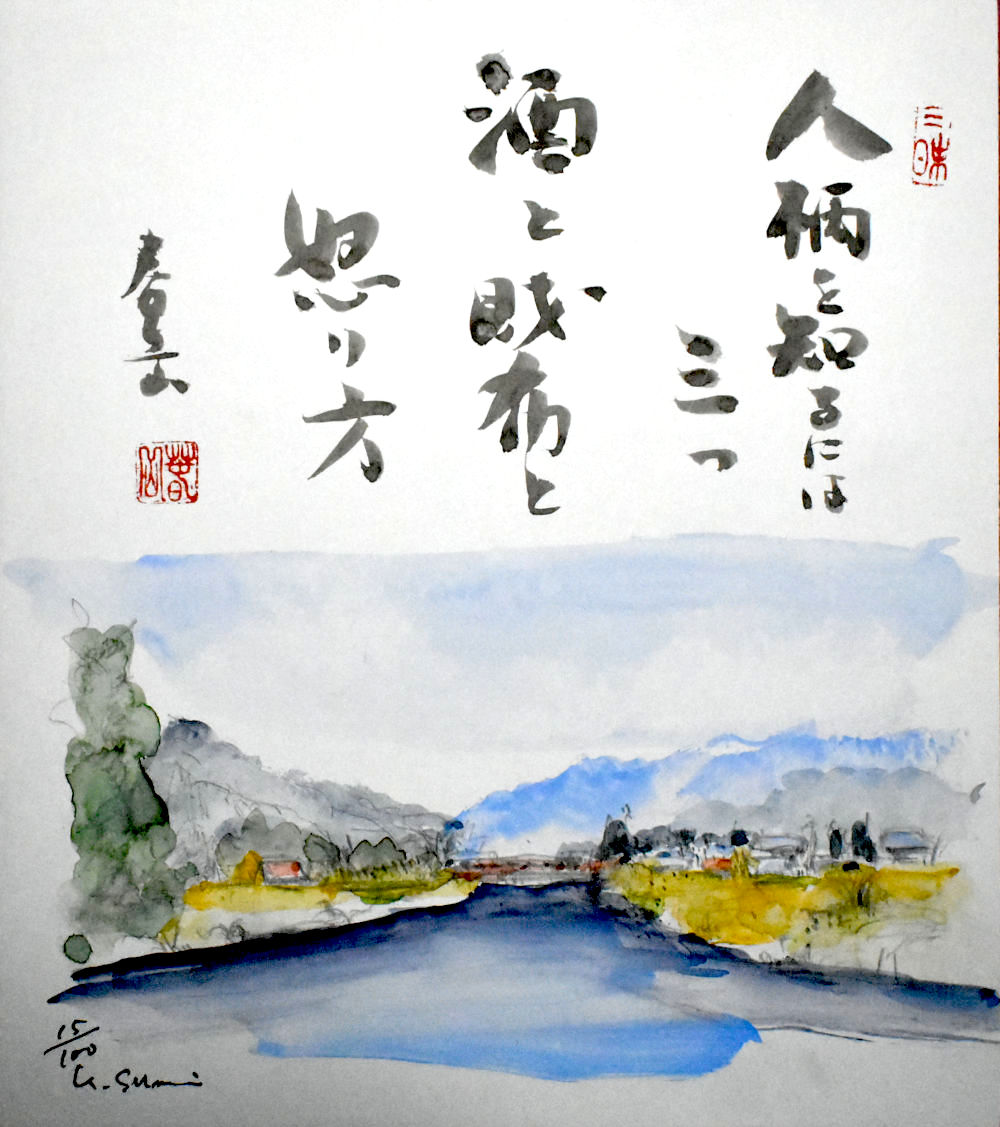 三昧
人柄を知るには
三つ
酒と財布と
怒り方
15/100